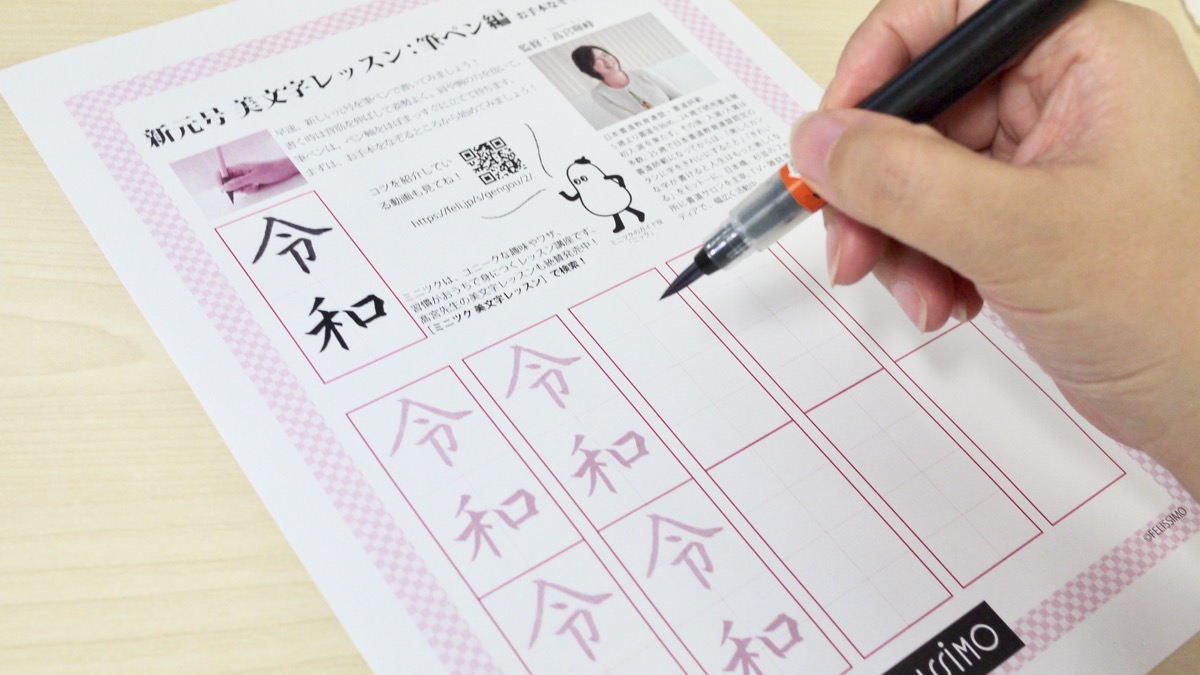 新元号 美文字レッスン：筆ペン編 お手本なぞ
監修：高宮暉峰
早速、新しい元号を筆ペンで書いてみましょう！
書く時は背筋を伸ばして姿勢よく。肩や腕の力を抜いて、
筆ペンは、ペン軸をほぼまっすぐに立てて持ちます。
まずは、お手本をなぞるところから始めてみましょう！
コツを紹介してい
る動画も見てね！
https://feli.jp/s/gengou/2/
令
和
ミニツクは、ユニークな趣味やワザ、
習慣がおうちで身につくレッスン講座です。
高宮先生の美文字レッスンも絶賛発売中！
「ミニツク 美文字レッスン」で検索！
ミニツクのガイド役
「ニック」
令
和
令
令
和
令
和
©FELISSIMO
ISSIMO